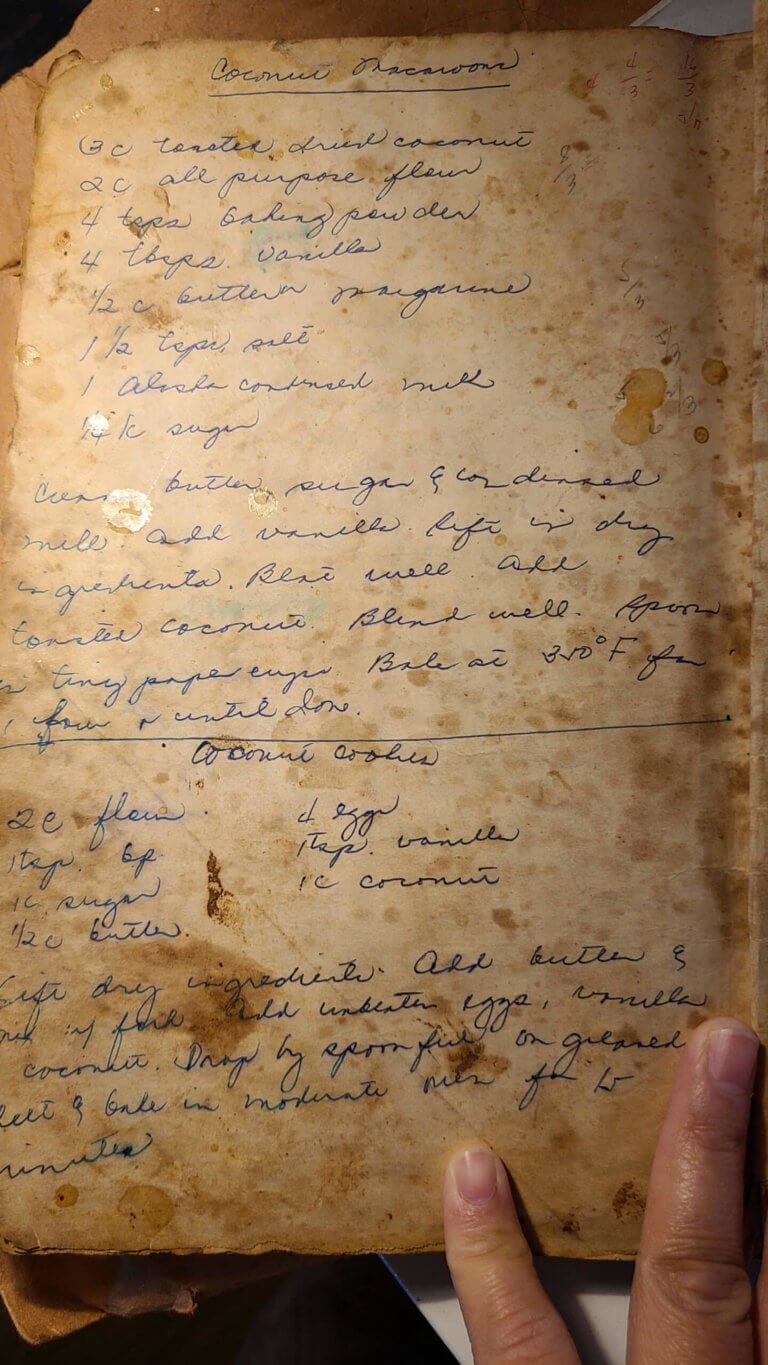 Coconut Macaroons
4 4/3 = 16/3
3 c toasted dried coconut
2 c all purpose flour
4 tsps baking powder
4 tbsps. vanilla
1/2 c butter or margarine
5/3
1 1/2 tsps. salt
1 Alaska condensed milk
1/4 c sugar
Cream butter, sugar & condensed
milk. Add vanilla. Sift in dry
ingredients. Beat well. Add
toasted coconut. Blend well. Spoon
in tiny paper cups. Bake at 350°F for
1 hour or until done.
Coconut Cookies
2 c flour
1 tsp. bp
1 c sugar
1/2 c butter.
4 eggs
1 tsp. vanilla
1 c coconut
Sift dry ingredients. Add butter &
mix w/ fork. Add unbeaten eggs, vanilla
coconut. Drop by spoonful on greased
& bake in moderate oven for 15
minutes